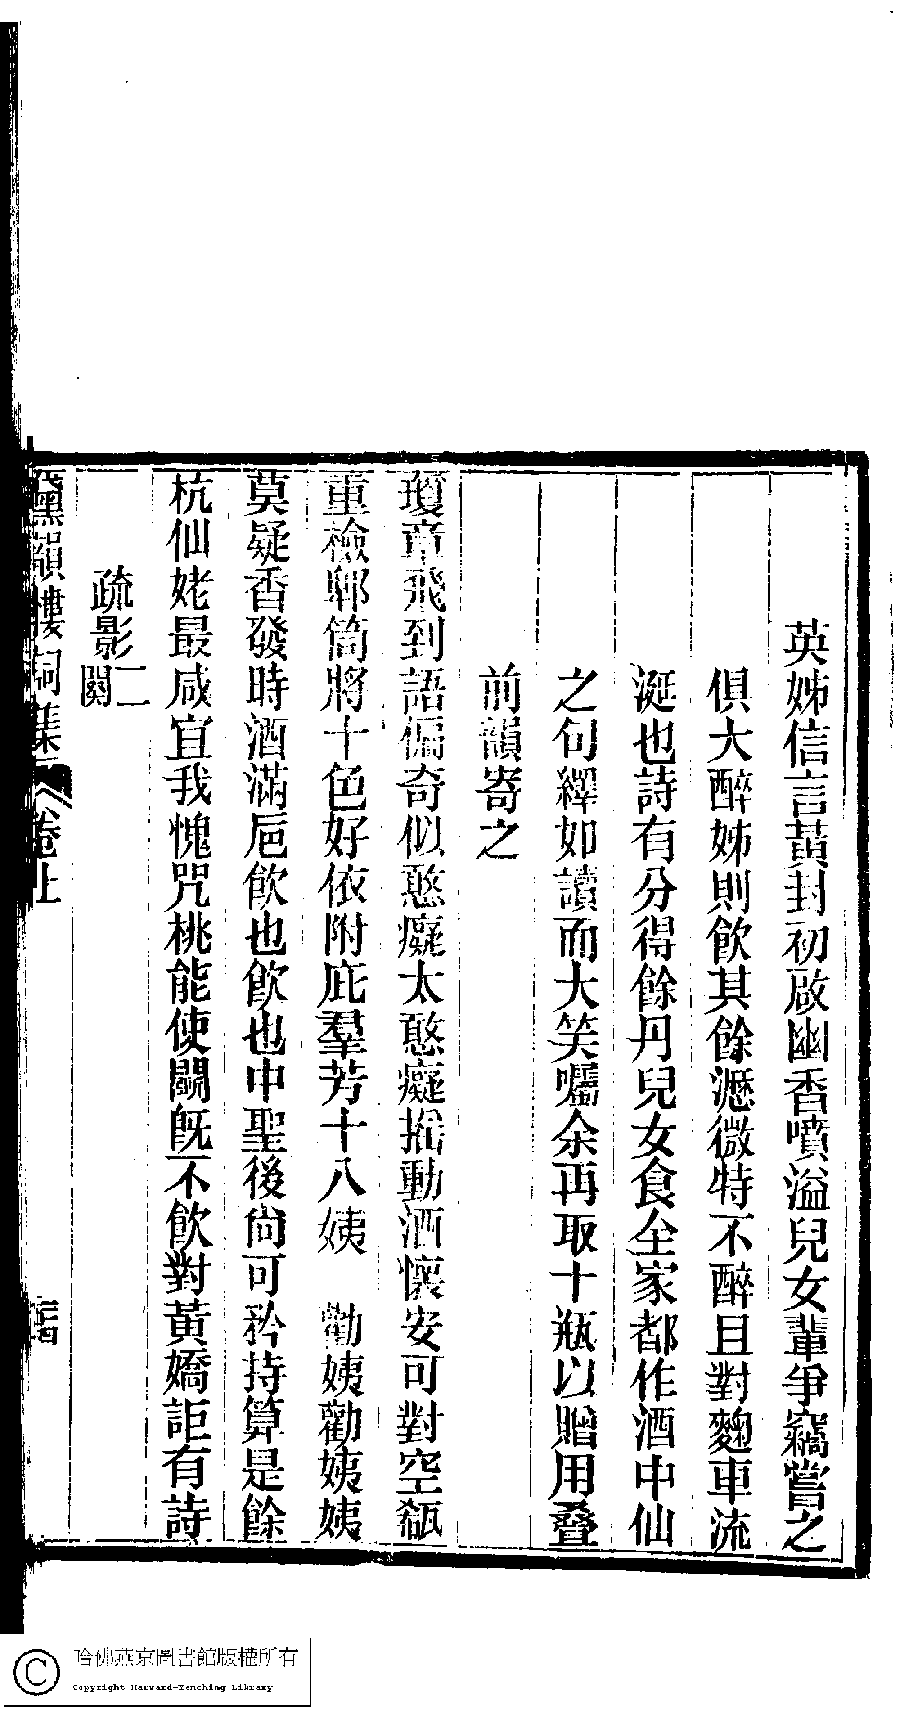 英姊信言黃封初啟幽香噴溢兒女輩爭竊嘗之
俱大醉姊則飲其餘瀝微特不醉且對麴車流
涎也詩有分得餘丹兒女食全家都作酒中仙
之句繹如讀而大笑囑余再取十瓶以贈用疊
前韻寄之
瓊章飛到語偏奇似憨癡太憨癡搖動酒懷安可對空瓻
重檢郫筒將十色好依附庇羣芳十八姨　勸姨勸姨姨
莫疑香發時酒滿巵飲也飲也中聖後尙可矜持算是餘
杭仙姥最咸宜我愧咒桃能使鬭旣不飲對黃嬌詎有詩
疏影二闋
黛韻樓詞集　卷上
哈佛燕京圖書館版權所有
Copyright Harvard-Yenching Library